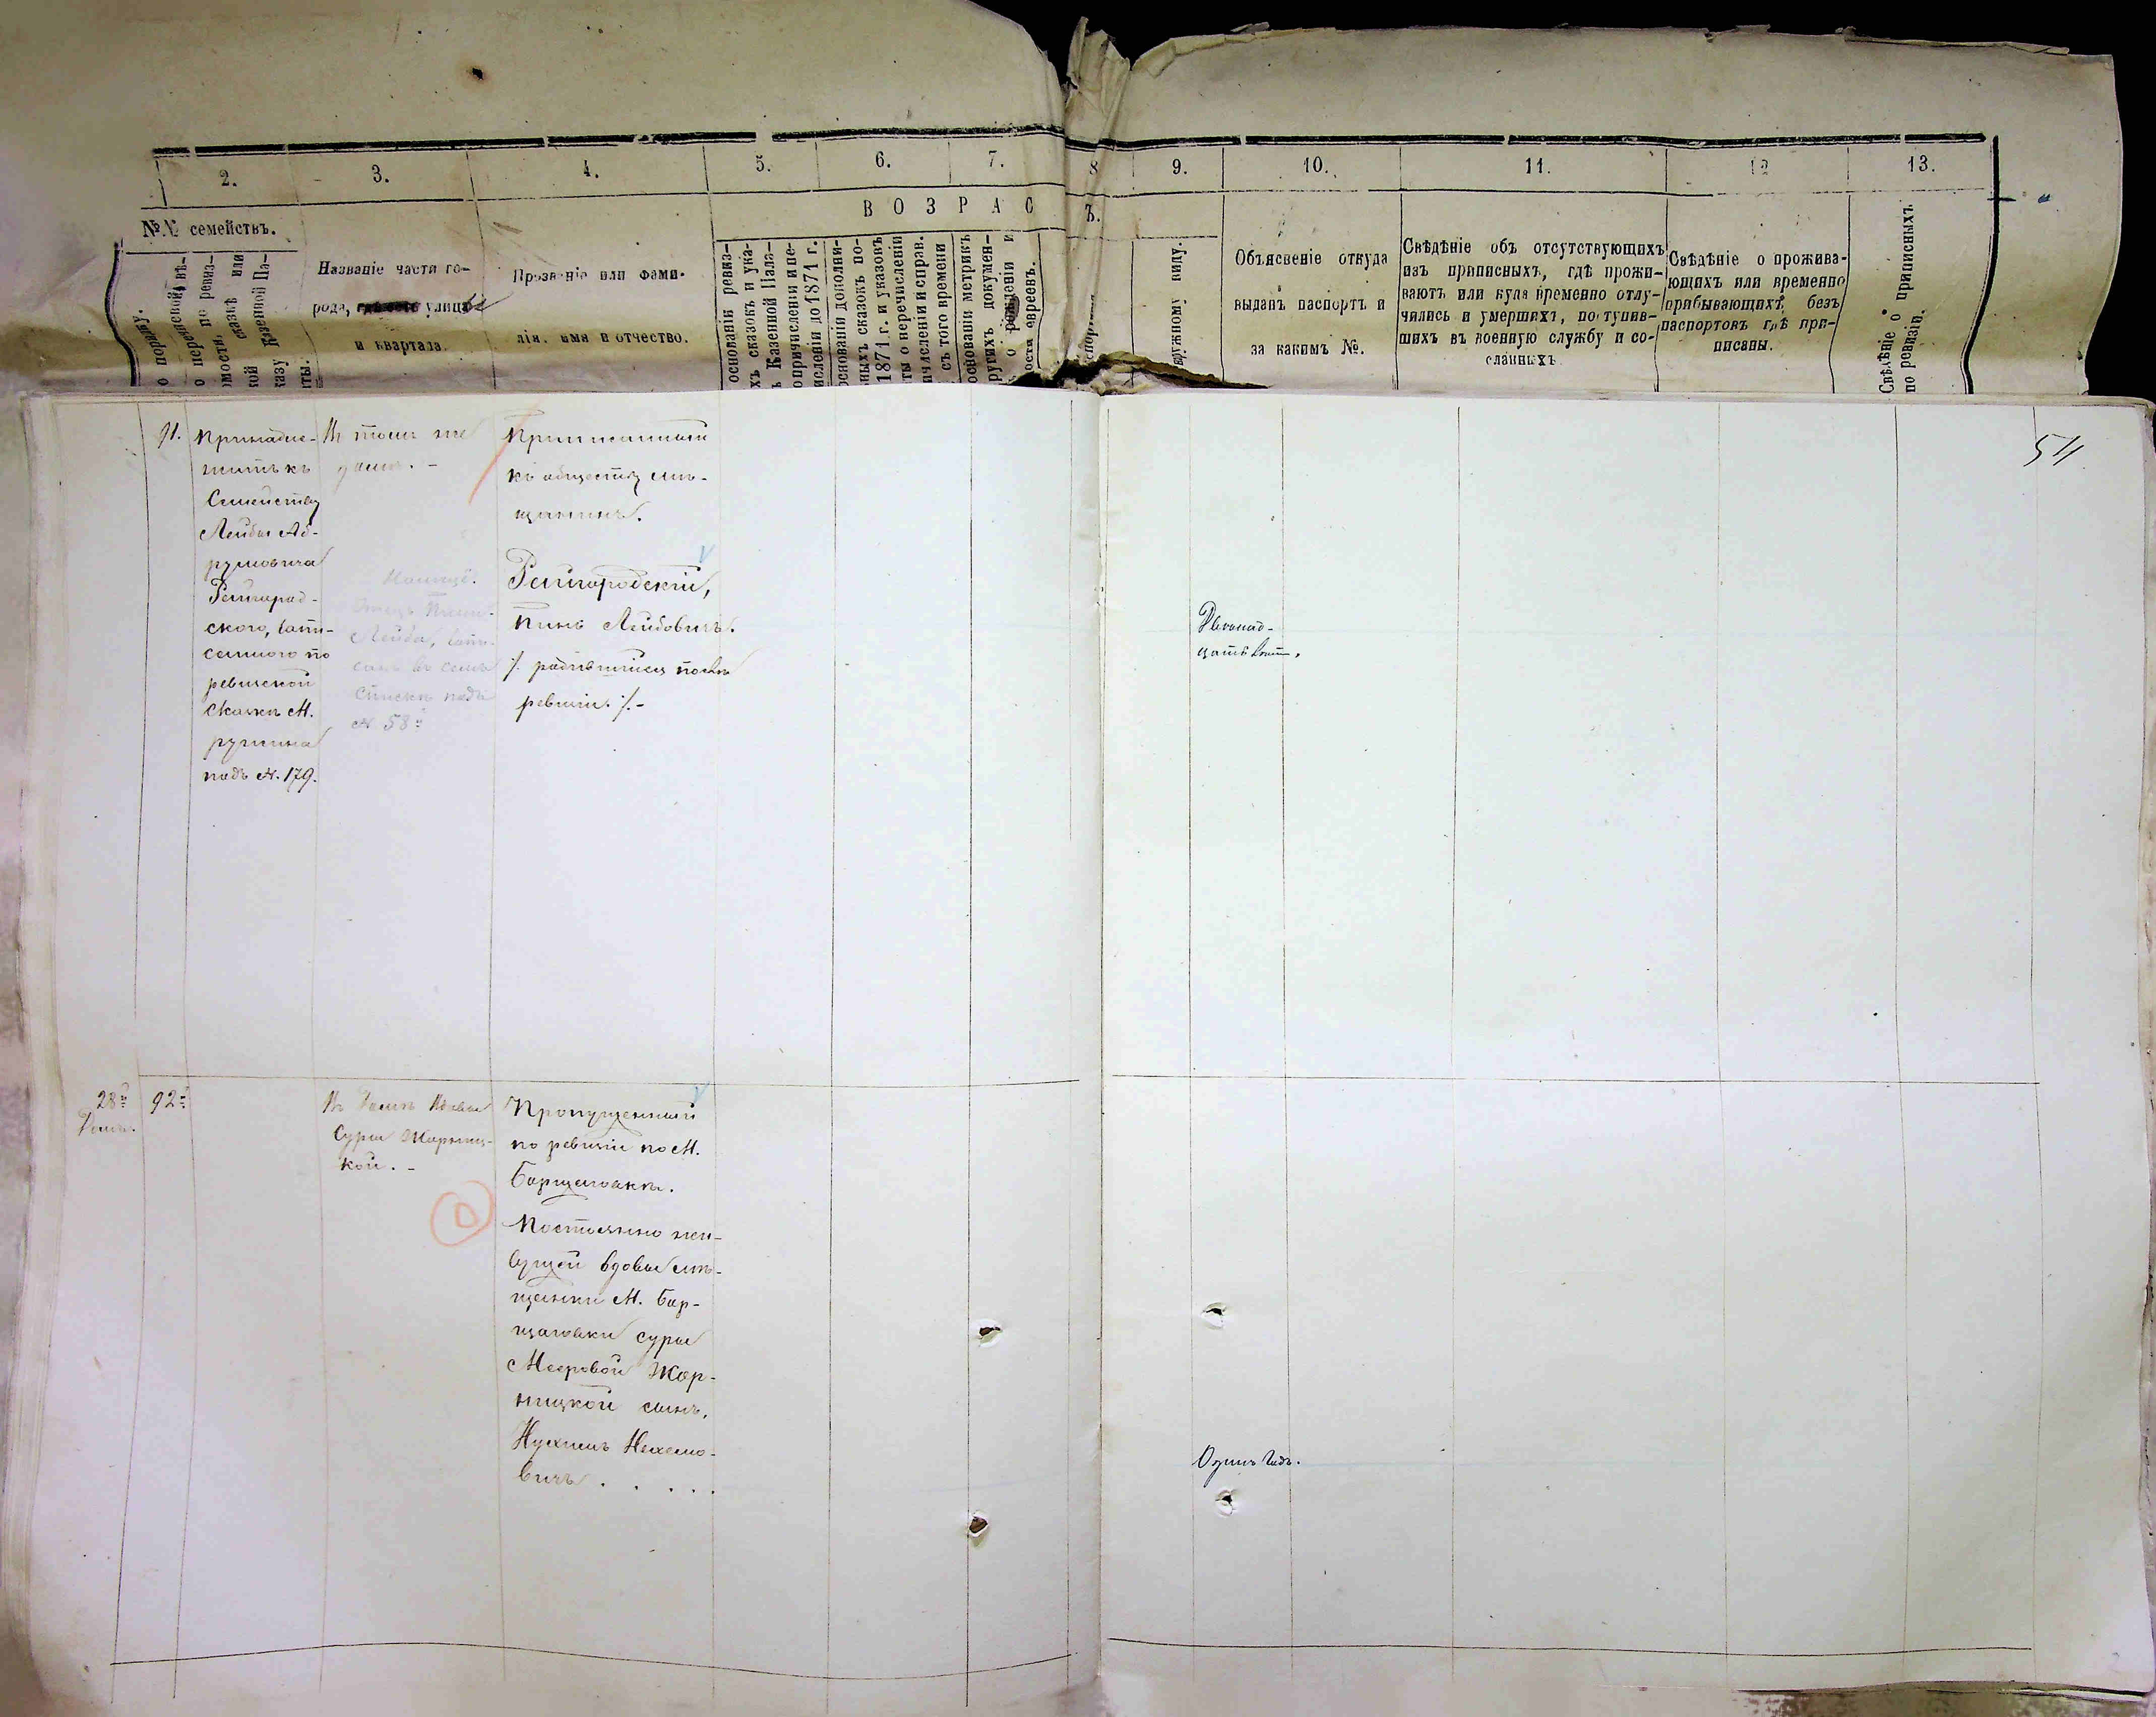 2.
3.
4.
5.
6.
7.
8
9.
10.
11.
12
13.
№№ семействъ.
В О З Р А С Ъ.
о порядку.
Названіе части го-
рода, улицы
и квартала.
Прозваніе или фами-
лія, имя и отчество.
основаніи ревиз-
хъ сказокъ и ука-
ъ Казенной Пала-
о причисленіи и пе-
исленіи до 1871 г.
основаніи дополни-
ныхъ сказокъ по-
1871 г. и указовъ
ты о перечисленіи
ичисленіи и справ.
съ того времени
основаніи метрикъ
ругихъ докумен-
о рожденіи и
ости евреевъ.
аружному виду.
Объясненіе откуда
выданъ паспортъ и
за какимъ №.
Свѣдѣніе объ отсутствующихъ
изъ приписныхъ, гдѣ прожи-
ваютъ или куда временно отлу-
чились и умершихъ, поступив-
шихъ въ военную службу и со-
сланныхъ.
Свѣдѣніе о прожива-
ющихъ или временно
прибывающихъ, безъ
паспортовъ гдѣ при-
писаны.
Свѣдѣніе о приписныхъ
по ревизіи.
511
91.
Принадле-
житъ къ
Семейству
Лейбы Аб-
румовича
Рейгород-
ского, запи-
санного по
ревизской
Сказкѣ М.
ружина
подъ №. 179.
Въ томъ же
домѣ. -
Лейба,
въ сем.
Списки подъ
№ 58й
Приписанный
къ обществу мѣ-
щанинъ.
Рейгородскій,
Пинъ Лейбовичъ.
⁒ родившійся послѣ
ревизіи. ⁒ -
Двѣнад-
цать лѣтъ.
28й
Домъ.
92й
Въ Домѣ Вдовы
Суры Жорниц-
кой. -
Пропущенный
по ревизіи по М.
Борщаговкѣ.
Постоянно жи-
вущей вдовы мѣ-
щанки М. Бор-
щаговки Суры
Мееровой Жор-
ницкой сынъ,
Нухимъ Нехемо-
вичъ . . . . .
Одинъ годъ.